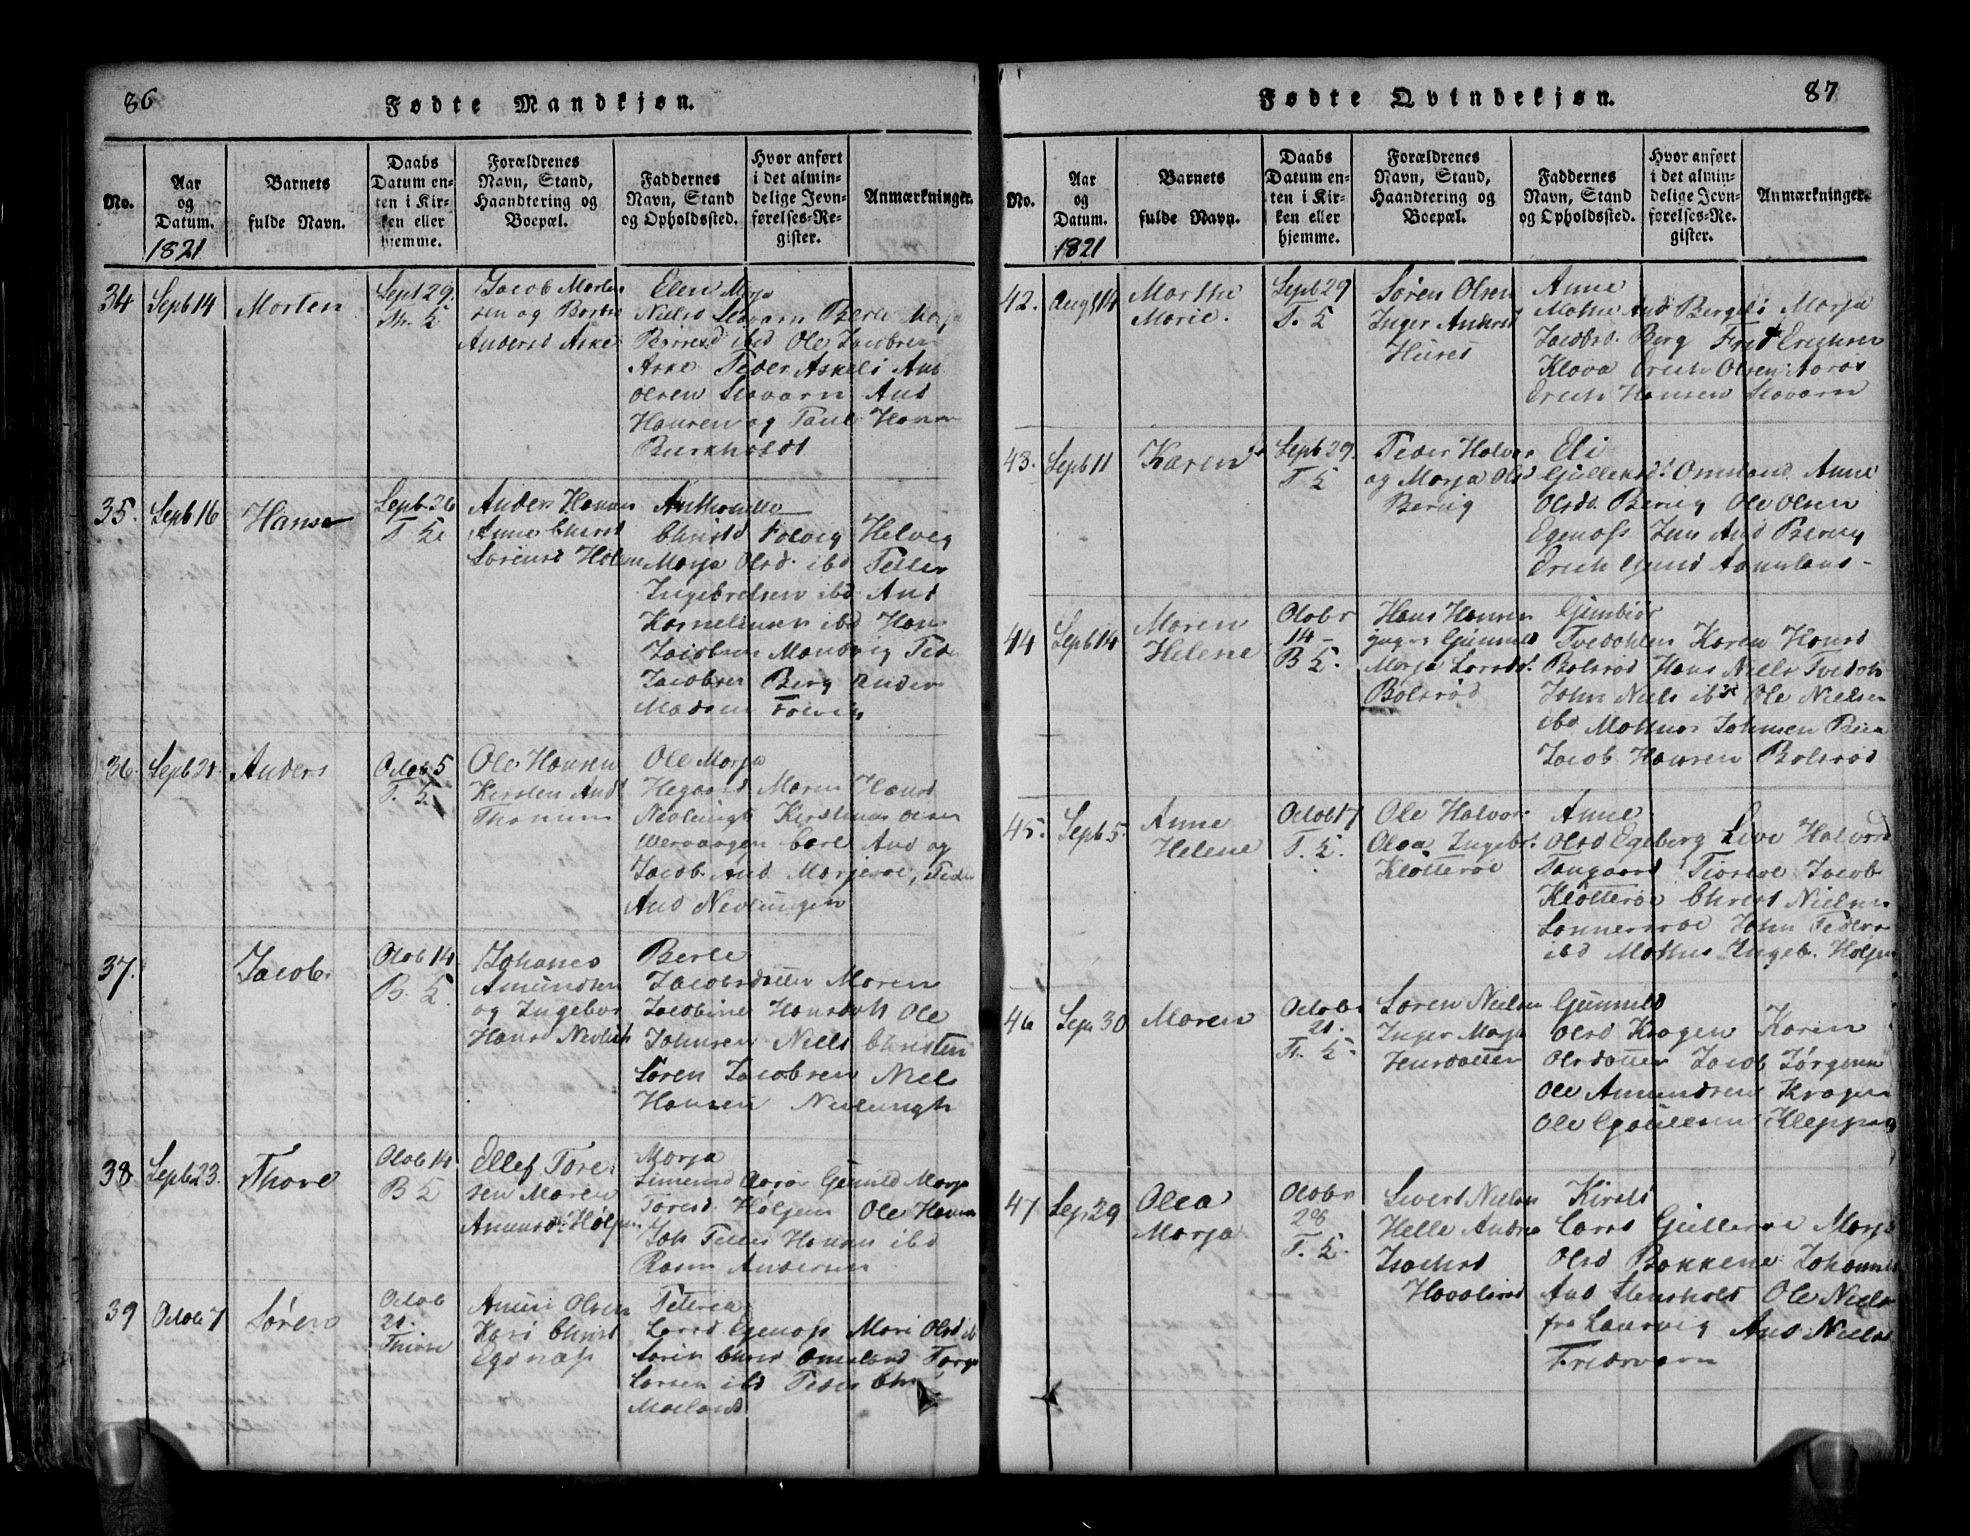 86
Fødte Mandkjøn.
No.
Aar
og
Datum.
1821
Barnets
fulde Navn.
Daabs
Datum en-
ten i Kir-
ken eller
hjemme.
Forældrenes
Navn, Stand,
Haandtering og
Boepæl.
Faddernes
Navn, Stand
og Opholdssted.
Hvor anført
i det almin-
delige Jevn-
førelses-Re-
gister.
Anmærkninger.
34
Septb 14
Morten
Sept 29.
Jacob Morten
sen og
Andersd Aske
Elen Morja
Nielsd Stavarn Berte Morja
ibd Ole Jacobsen
Aske Peder Askeli And
Olsen Stavarn And
Hansen og Paul Hansen
Burkholdt
35.
Septb 16
Hans
Septb 26
Anders Hansen
Anne Christ
Sørensd Holm
Christd Folvig Helvig
Morja Olsd. ibd Peder
Ingebretsen ibd And
Kornelinsen ibd Hans
Jacobsen Mandvig Ped
Jacobsen Berg Ander
Madsen Folvig
36.
Septb 21
Anders
Octob 5
Ole Hansen
Kirsten And
Thorsen
Ole Morja
Hegaard Maren Hansd
Nevlungh Kirstmas Olsen
Wervaagen Carl And og
Jacob And Morjeroe, Peder
And Nevlungen
37.
Jacob
Octob 14
Johanes
Amundsen
og Ingebor
Hansd Nevlun
Berte
Jacobsdatter Maren
Jacobine Hansdatt Ole
Johnsen Niels Christen
Søren Jacobsen Niels
Hansen Nevlungh
38
Septb 23.
Thore
Octob 14
Ellef Tore
sen Maren
Amundd. Høljen
Morja
Simensd Aarøe Gunild Morja
Toresd. Høljem Ole Hansen
Joh Peder Hansen ibd
Rasm Andersen
39
Octob 7
Søren
Octob
21.
Amun Olsen
Kari Christ
Egenæss
Peterea
Larsd Egenæss Mari Olsd ib
Søren Christ Omeland Torge
Larsen ibd Peder Chr
Mæland
87
Fødte Qvindekjøn.
No.
Aar
og
Datum.
1821
Barnets
fulde Navn.
Daabs
Datum en-
ten i Kir-
ken eller
hjemme.
Forældrenes
Navn, Stand,
Haandtering og
Boepæl.
Faddernes
Navn, Stand
og Opholdssted.
Hvor anført
i det almin-
delige Jevn-
førelses-Re-
gister.
Anmærkninger.
42.
Augt 14
Marthe
Marie.
Sept 29
Søren Olsen
Inger Andersd
Hures
Anne
Mathe And Bergeli Morja
Jacobsd. Berg Fred Erichsen
Klova Erich Olsen Aarøs
Erich Hansen Stavarn
43.
Septb 11
Karen
Septb 29.
Peder Halvor
og Morja Olsd
Berrig
Eli
Gullensd. Omland Anne
Olsdt. Berrig Ole Olsen
Egenæss Jens And Berrig
Erich Gund
44
Septb 14
Maren
Helene
Octobr
14 -
Hans Hansen
gager Gunnes
Morja Larsd.
Bolsrød
Gunbiør
Tvedahlen Karen Hansd
Bolsrød Hans Niels Tvedah
John Niels ibd Ole Nielsen
ibd Mathias Johnsen
Jacob Hansen Bolsrød
45.
Septb 5.
Anne
Helene
Octob 17
Ole Halvor
Olea Ingebr.
Kløtterøe
Anne
Olsd Egeberg Live Halvord
Tangaard Jacob
Kløtterøe Christ Nielsen
Sonnersroe John Peders
ibd Mathis Ingeb. Holjem
46
Sepr 30
Maren
Octobr
21.
Søren Nielsen
Inger Morja
Jensdatter
Gunnild
Olsd Kragen Karen
Olsdatter Jacob Jørgensen
Ole Amundsen Kragen
Ole Kleppan
47
Sep 29
Olea
Morja
Octobr
28
Sivert Nielsen
Helle Andrea
Isachsd
Kirsti
Larsd Gulleroe Morja
Olsd Bakkene Johannes
And Stensholt Ole Niels
fra Laurvig And Niels
Fredrvarn